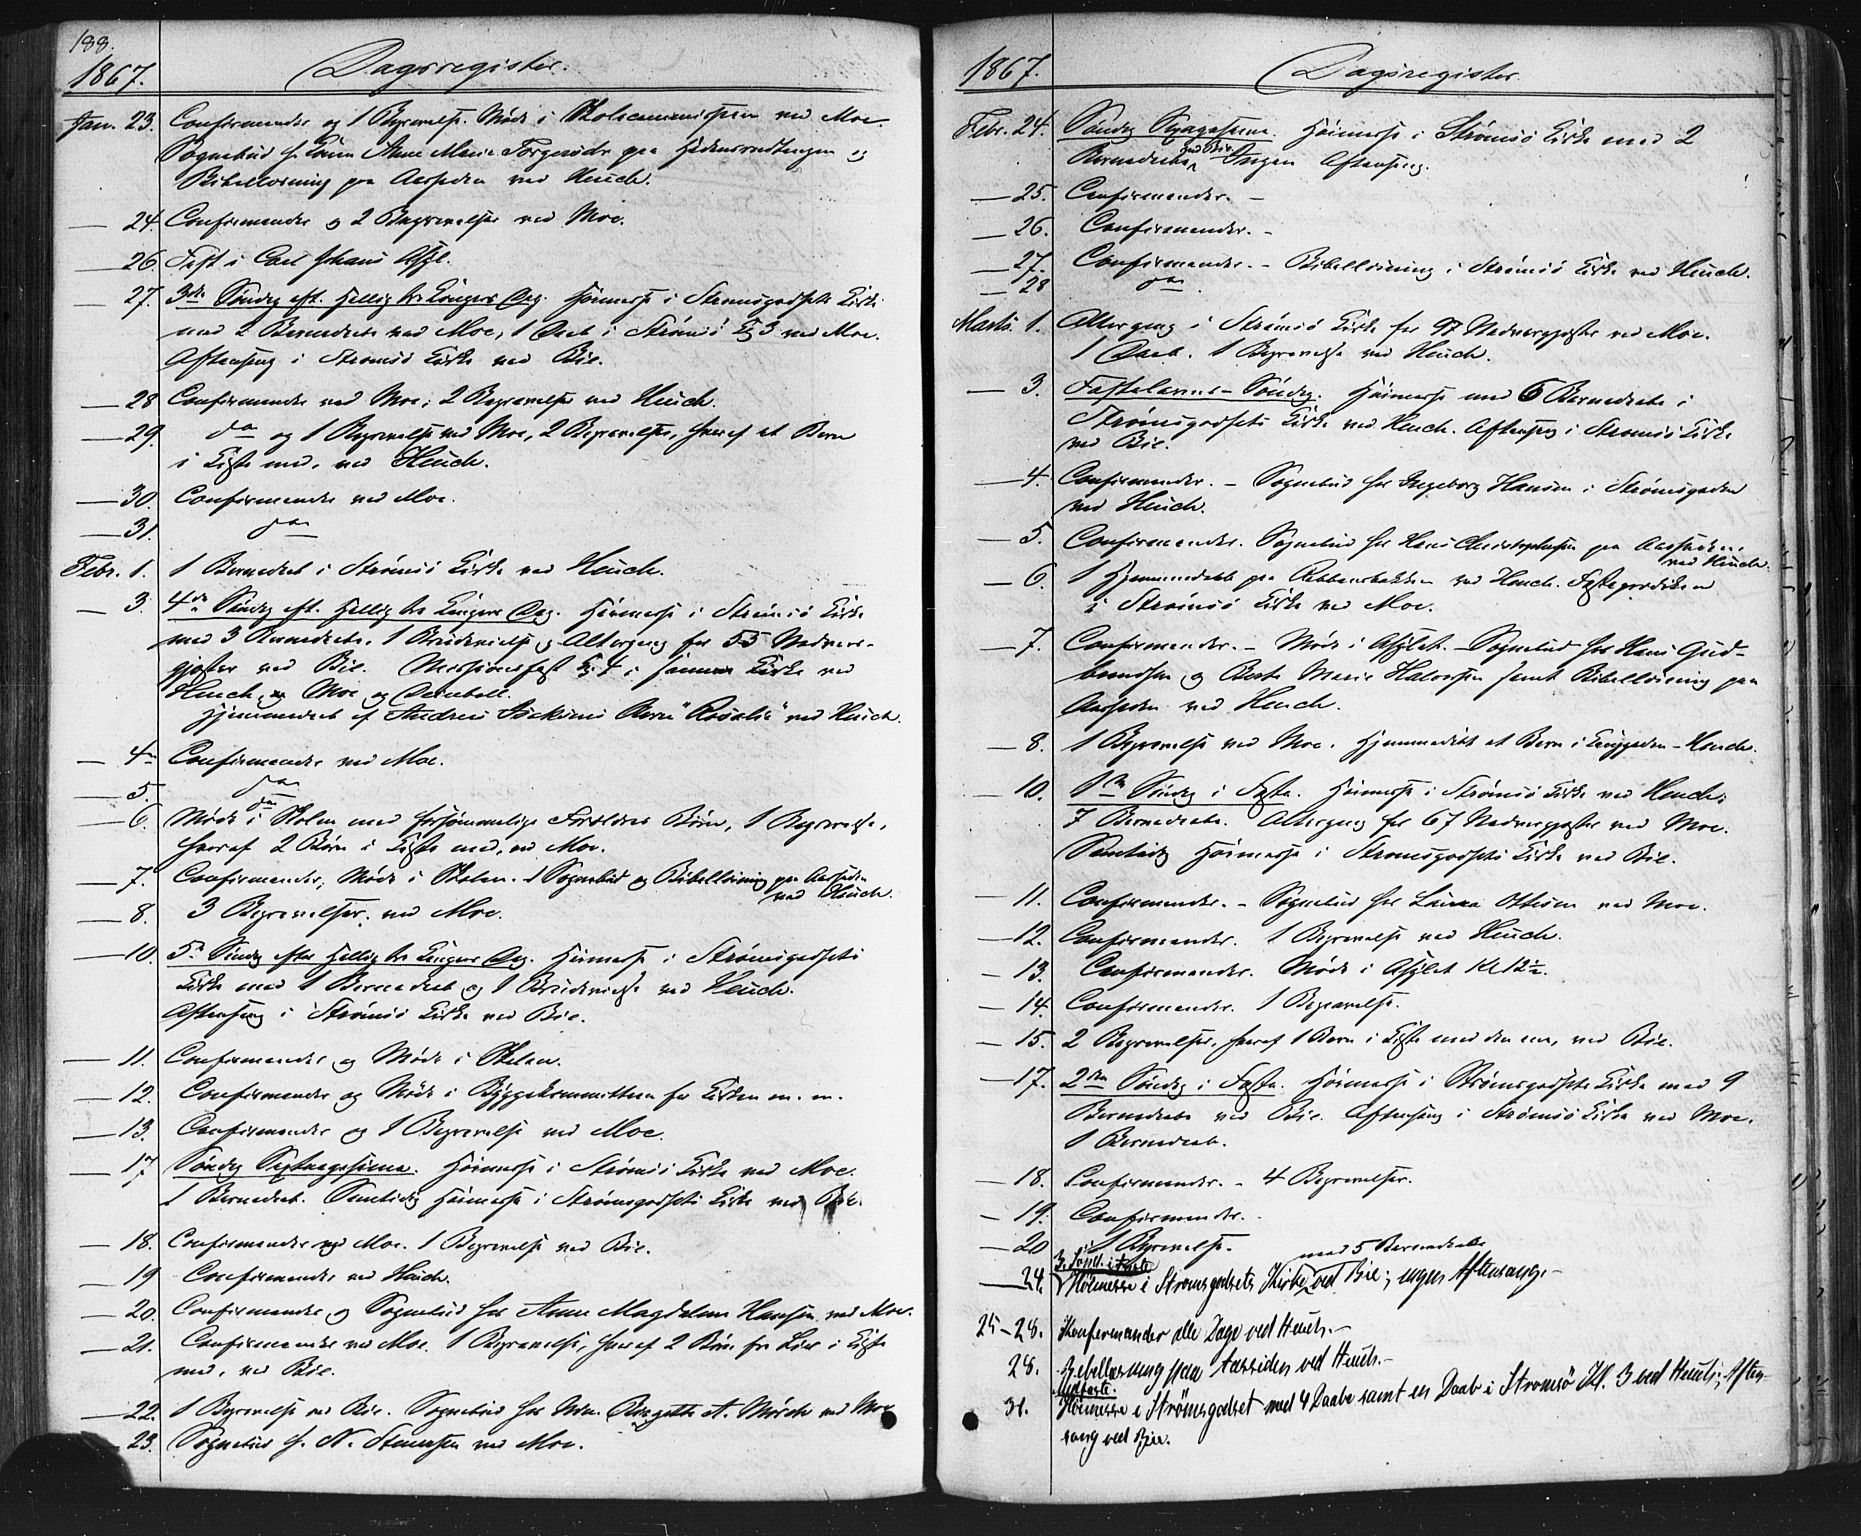 188.
1867. Dagsregister.
Jan. 23. Confirmander og 1 Begravelse. Møde i Skolecommissionen ved Moe.
Sognebud f. Anne Marie Torgersdr paa og
Bibellæsning paa Aassiden ved Heuch.
— 24. Confirmander og 2 Begravelser ved Moe.
— 26. Fest i Carl Johans Asyl.
— 27. 3die Søndag eft. Hellig tre Kongers Dag. Høimesse i Strømsgodsets Kirke
med 2 Barnedaab ved Moe, 1 Daab i Strømsø Kl 3 ved Moe.
Aftensang i Strømsø Kirke ved Bie.
— 28 Confirmander ved Moe; 2 Begravelser ved Heuch.
— 29. do og 1 Begravelse ved Moe, 2 Begravelser, hvoraf et Barn
i Kiste med, ved Heuch.
— 30. Confirmander ved Moe.
— 31. do
Febr. 1. 1 Barnedaab i Strømsø Kirke ved Heuch.
— 3. 4de Søndag eft. Hellig tre Kongers Dag. Høimesse i Strømsø Kirke
med 3 Barnedaab, 1 Brudevielse og Altergang for 55 Nadver-
gjæster ved Bie. Missionsfest Kl. 4 i samme Kirke ved
Heuch, og Moe og
Hjemmedaab af Andreas Barn "Rosalie" ved Heuch.
— 4 Confirmander ved Moe.
— 5. do
— 6. do Møde i Skolen med forsømmelige Forældres Børn, 1 Begravelse,
hvoraf 2 Børn i Kiste med, ved Moe.
— 7. Confirmander, Møde i Skolen. 1 Sognebud og Bibellæsning paa Aassiden
ved Heuch.
— 8. 3 Begravelser ved Moe.
— 10. 5te Søndag efter Hellig tre Kongers Dag. Høimesse i Strømsgodsets
Kirke med 1 Barnedaab og 1 Brudevielse ved Heuch.
Aftensang i Strømsø Kirke ved Bie.
— 11. Confirmander og Møde i Skolen.
— 12. Confirmander og Møde i Byggekommitteen for Kirken m. m.
— 13. Confirmander og 1 Begravelse ved Moe.
— 17 Søndag Septuagesima. Høimesse i Strømsø Kirke ved Moe.
1 Barnedaab. Samtidig Høimesse i Strømsgodsets Kirke ved Bie.
— 18. Confirmander ved Moe. 1 Begravelse ved Bie.
— 19 Confirmander ved Heuch.
— 20. Confirmander og Sognebud for Anne Magdalene Hansen ved Moe.
— 21. Confirmander ved Moe. 1 Begravelse, hvoraf 2 Børn fra Lier i Kiste
med, ved Bie.
— 22. 1 Begravelse ved Bie. Sognebud for A. Mørch ved Moe
— 23. Sognebud f. N. Stenersen ved Moe.
1867. Dagsregister.
Febr. 24. Søndag Sexagesima. Høimesse i Strømsø Kirke med 2
Barnedaab ved Bie. Ingen Aftensang.
— 25. Confirmander. –
— 26. Confirmander. –
— 27. Confirmander. – Bibellæsning i Strømsø Kirke ved Heuch.
— 28 do
Marts. 1. Altergang i Strømsø Kirke for 97 Nadvergjæster ved Moe.
1 Daab. 1 Begravelse ved Heuch.
— 3. Fastelavns-Søndag. Høimesse med 6 Barnedaab i
Strømsgodsets Kirke ved Heuch. Aftensang i Strømsø Kirke
ved Bie.
— 4. Confirmander. – Sognebud for Ingeborg Hansen i Strømsgaden
ved Heuch.
— 5. Confirmander. Sognebud for Hans Christophersen paa Aassiden
ved Heuch.
— 6. 1 Hjemmedaab paa ved Heuch. Fasteprædiken
i Strømsø Kirke ved Moe.
— 7. Confirmander. – Møde i Asylet. – Sognebud for Hans Gud-
brandsen og Berte Marie Halvorsen samt Bibellæsning paa
Aassiden ved Heuch.
— 8. 1 Begravelse ved Moe. Hjemmedøbt et Barn i Langgaden – Heuch.
— 10. 1ste Søndag i Faste. Høimesse i Strømsø Kirke ved Heuch;
7 Barnedaab. Altergang for 67 Nadvergjæster ved Moe.
Samtidig Høimesse i Strømsgodsets Kirke ved Bie.
— 11. Confirmander. – Sognebud for Laura Ottesen ved Moe.
— 12. Confirmander. 1 Begravelse ved Heuch.
— 13. Confirmander. Møde i Asylet Kl 12½.
— 14. Confirmander. 1 Begravelse.
— 15. 2 Begravelser, hvoraf 1 Barn i Kiste med den ene, ved Bie.
— 17. 2den Søndag i Faste. Høimesse i Strømsgodsets Kirke med 9
Barnedaab ved Bie. Aftensang i Strømsø Kirke ved Moe.
1 Barnedaab.
— 18. Confirmander. – 4 Begravelser.
— 19. Confirmander.
— 20 1 Begravelse.
3. Sønd. i Faste med 5 Barnedaab
— 24. Høimesse i Strømsgodsets Kirke ved Bie; ingen Aftensang. –
25–28. Konfirmander alle Dage ved Heuch. –
28. Bibellæsning paa Aassiden ved Heuch. –
Midfaste.
31. Høimesse i Strømsgodset med 4 Daabe samt en Daab i Strømsø Kl. 3 ved Heuch; Aften-
sang ved Bie.